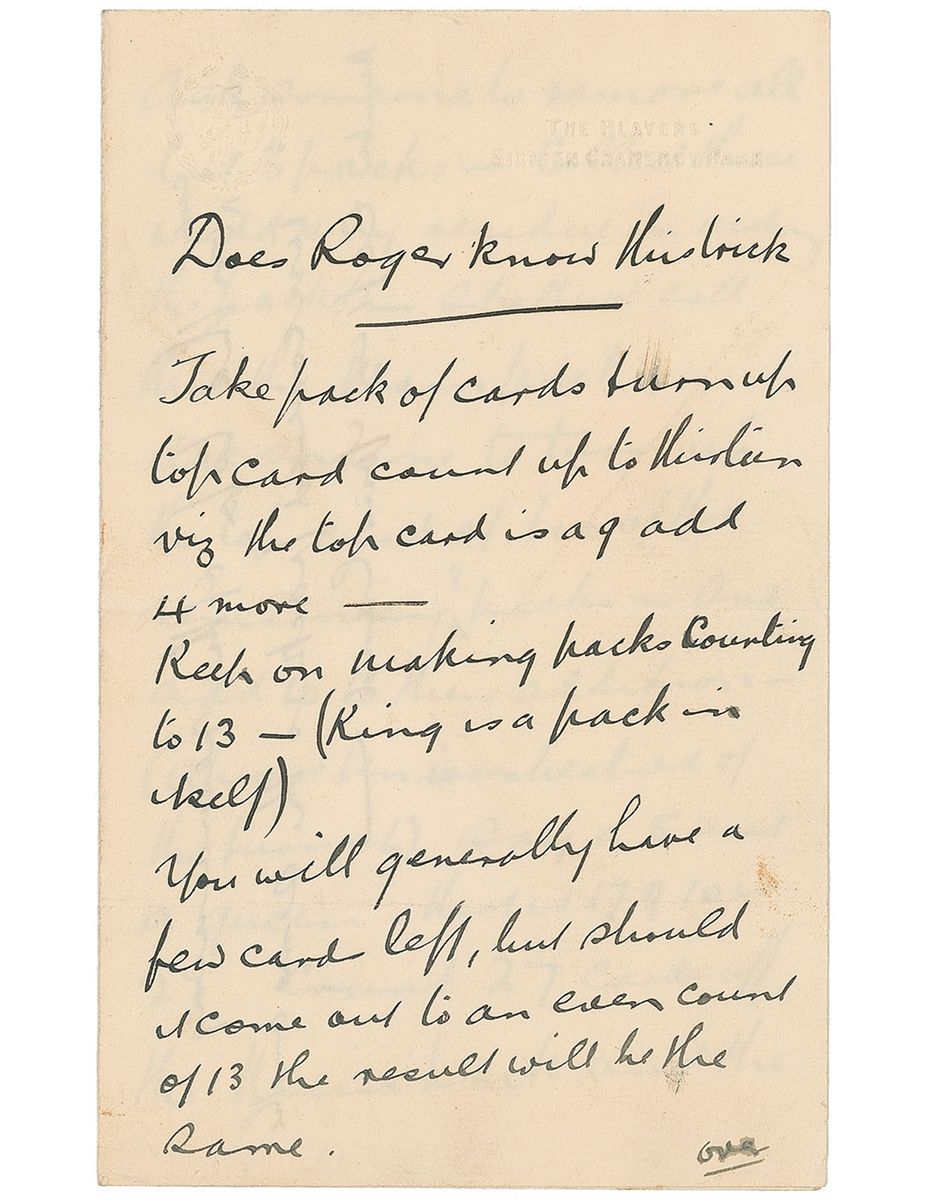 THE PLAYERS
SIXTEEN GRAMERCY PARK
Does Roger know this trick
Take pack of cards turn up
top card count up to thirteen
viz the top card is a 9 add
4 more —
Keep on making packs Counting
to 13 — (King is a pack in
itself)
You will generally have a
few cards left, but should
it come out to an even count
of 13 the result will be the
same.
over